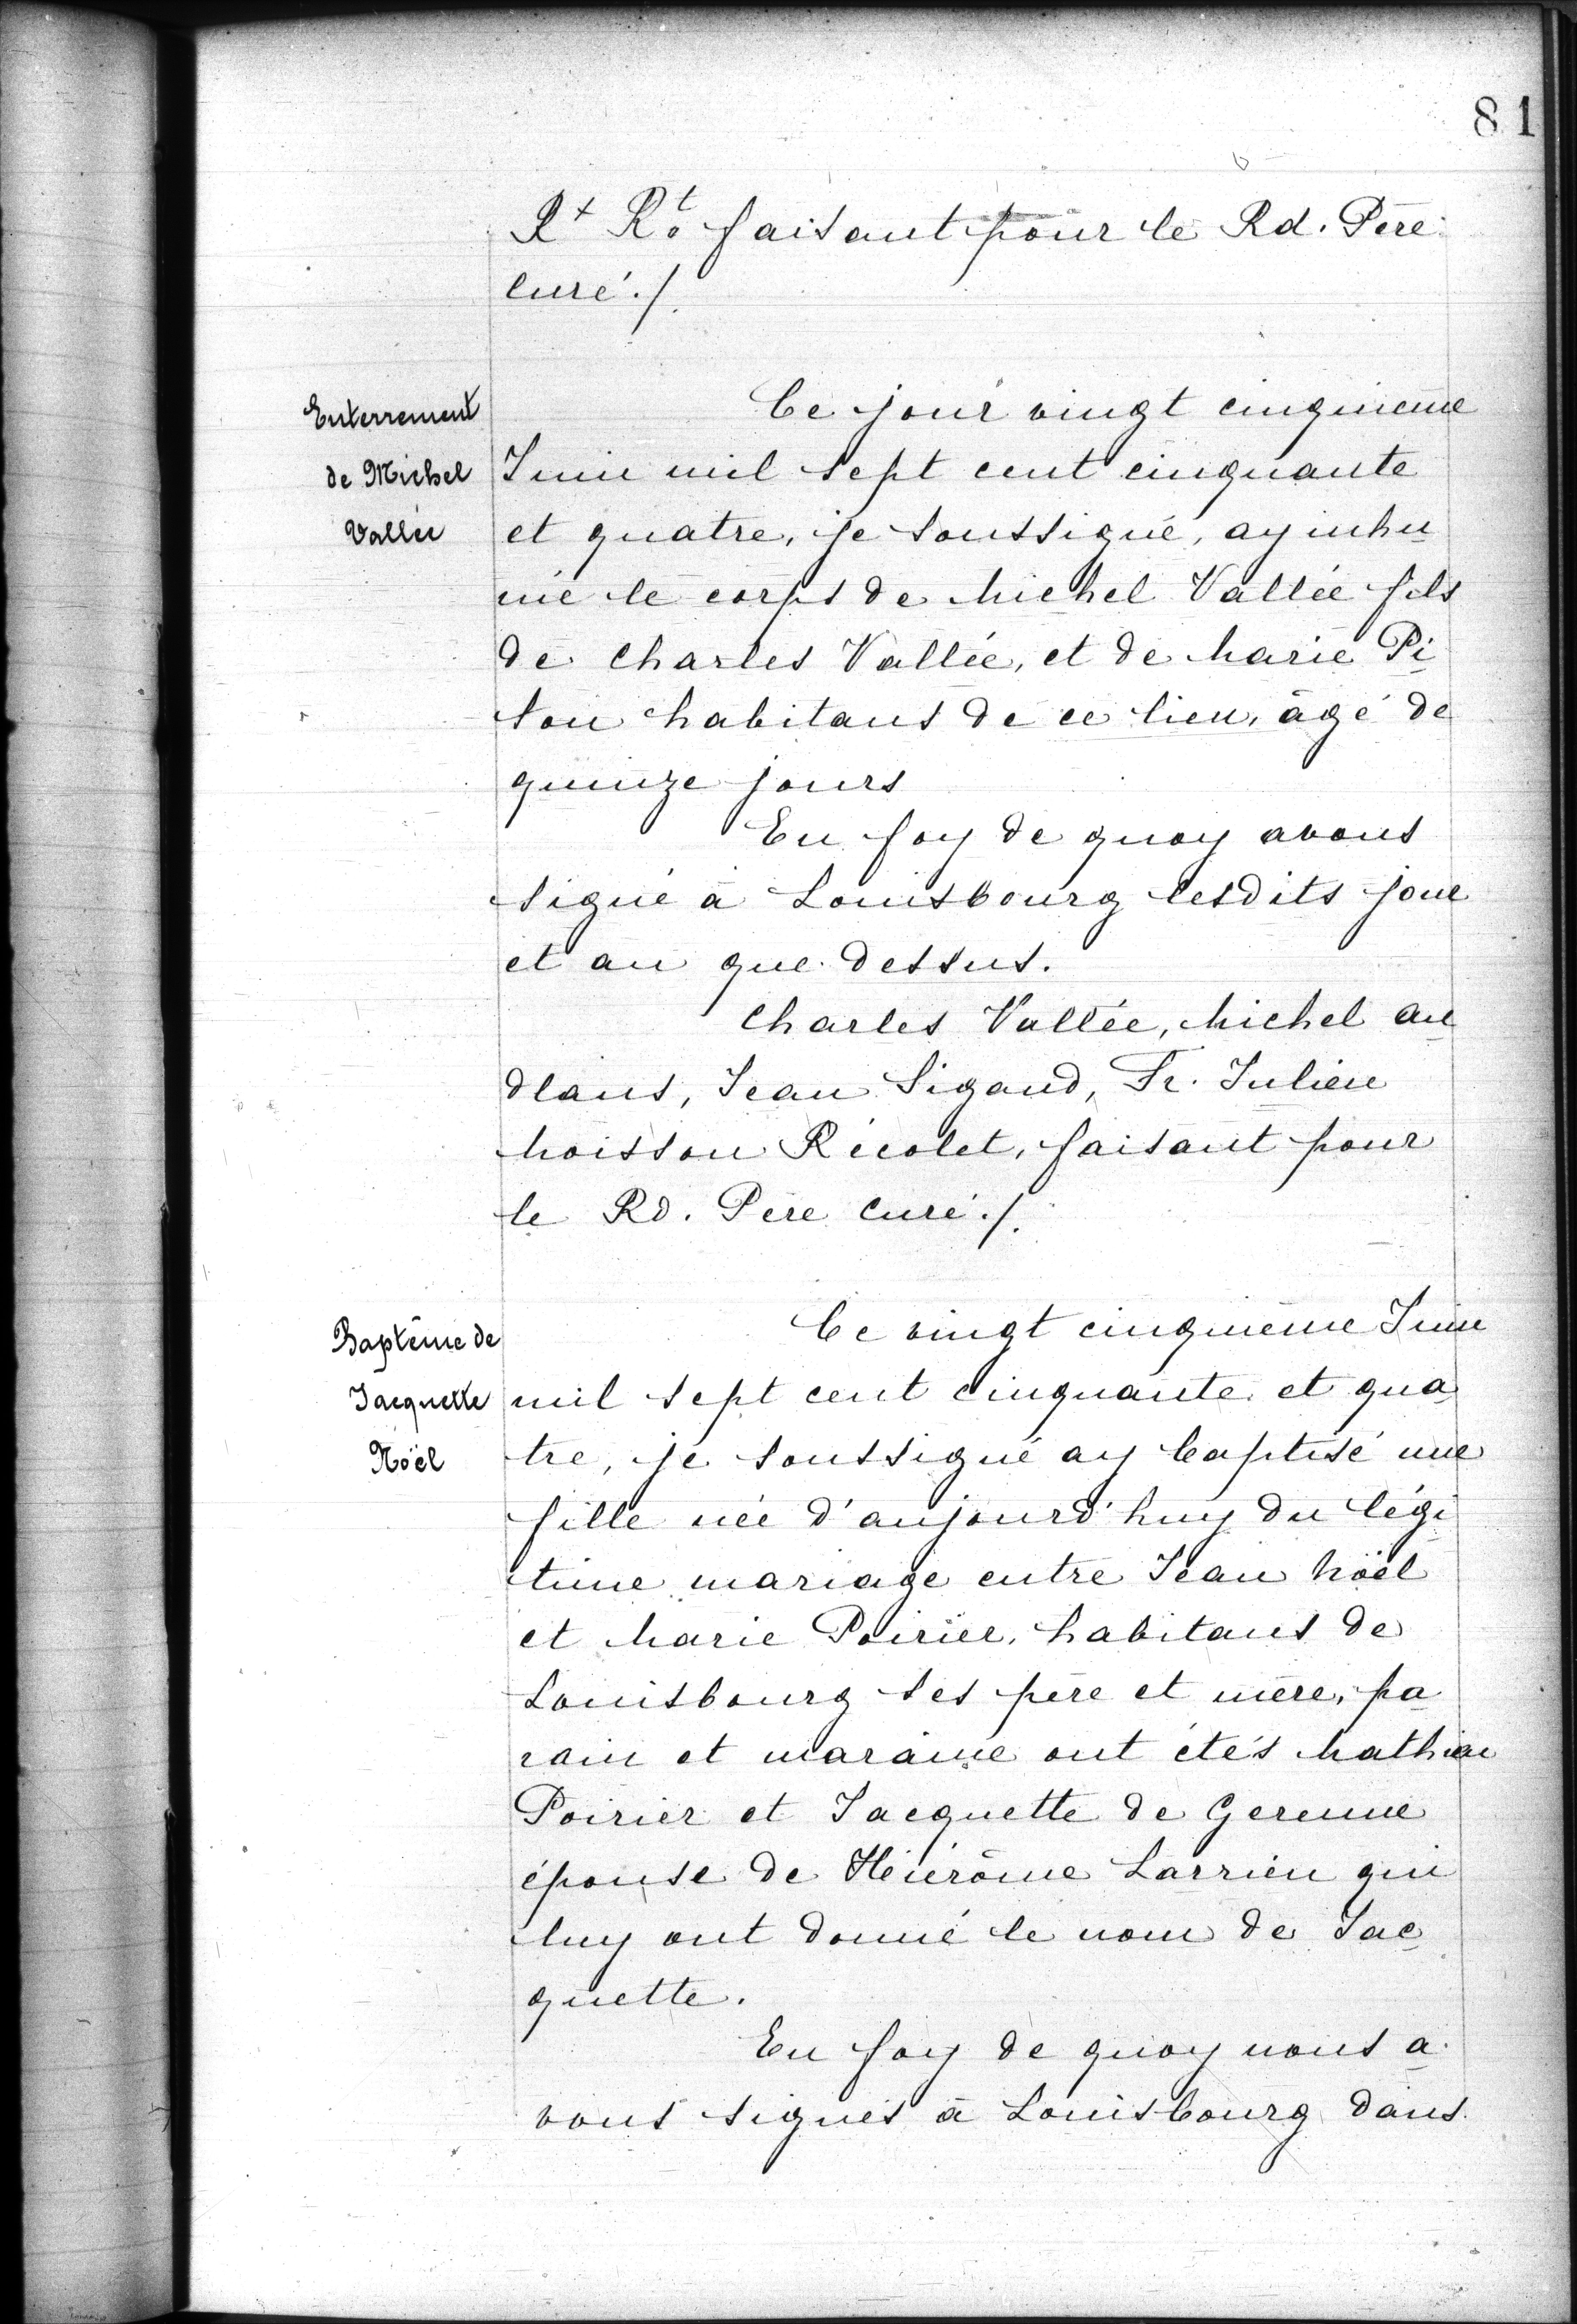 81
Rt Rt faisant pour le Rd. Père
curé./.
Enterrement
de Michel
Vallée
Ce jour vingt cinquième
Juin mil sept cent cinquante
et quatre, je soussigné, ay inhu
mé le corps de Michel Vallée fils
de Charles Vallée, et de Marie Pi
tou habitans de ce lieu, âgé de
quinze jours
En foy de quoy avons
signé à Louisbourg lesdits jour
et an que dessus.
Charles Vallée, Michel au
dlans, Jean Sigaud, Fr. Julien
Moisson Récolet, faisant pour
le Rd. Père Curé./.
Baptême de
Jacquette
Nöel
Ce vingt cinquième Juin
mil sept cent cinquante et qua
tre, je soussigné ay baptisé une
fille née d'aujourd'huy du légi
time mariage entre Jean Nöel
et Marie Poirier, habitans de
Louisbourg ses père et mère, pa
rain et maraine ont étés Mathieu
Poirier et Jacquette de Gerenne
épouse de Hiérôme Larrieu qui
luy ont donné le nom de Jac
quette.
En foy de quoy nous a
vons signés à Louisbourg dans